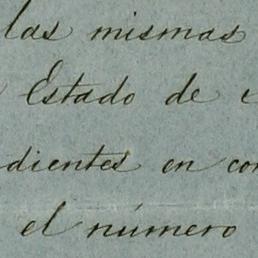 las mismas
Estado de
dientes en con
el número